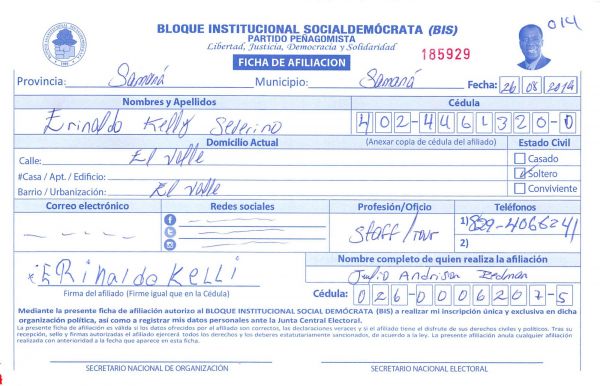 BLOQUE INSTITUCIONAL SOCIALDEMÓCRATA (BIS)
PARTIDO PEÑAGOMISTA
Libertad, Justicia, Democracia y Solidaridad
014
FICHA DE AFILIACION
185929
Provincia: Samaná Municipio: Samaná Fecha: 26 08 2019
Nombres y Apellidos Cédula
Erinaldo Kelly Severino 402-4461320-0
Domicilio Actual (Anexar copia de cédula del afiliado) Estado Civil
Calle: El Valle Casado
#Casa / Apt. / Edificio: Soltero
Barrio / Urbanización: El Valle Conviviente
Correo electrónico Redes sociales Profesión/Oficio Teléfonos
Staff/Tour 1) 829-4066241
2)
Nombre completo de quien realiza la afiliación
ERinaldo KELLI Julio Andrison
Firma del afiliado (Firme igual que en la Cédula) Cédula: 026-0006207-5
Mediante la presente ficha de afiliación autorizo al BLOQUE INSTITUCIONAL SOCIAL DEMÓCRATA (BIS) a realizar mi inscripción única y exclusiva en dicha
organización política, así como a registrar mis datos personales ante la Junta Central Electoral.
La presente ficha de afiliación es válida si los datos ofrecidos por el afiliado son correctos, las declaraciones veraces y si el afiliado tiene el disfrute de sus derechos civiles y políticos. Tras su
recepción, sello y firmas autorizadas el afiliado ejercerá todos los derechos y los deberes estatutariamente sancionados, de acuerdo a la ley. La presente afiliación anula cualquier afiliación
realizada con anterioridad a la fecha que aparece en esta ficha.
SECRETARIO NACIONAL DE ORGANIZACIÓN SECRETARIO NACIONAL ELECTORAL